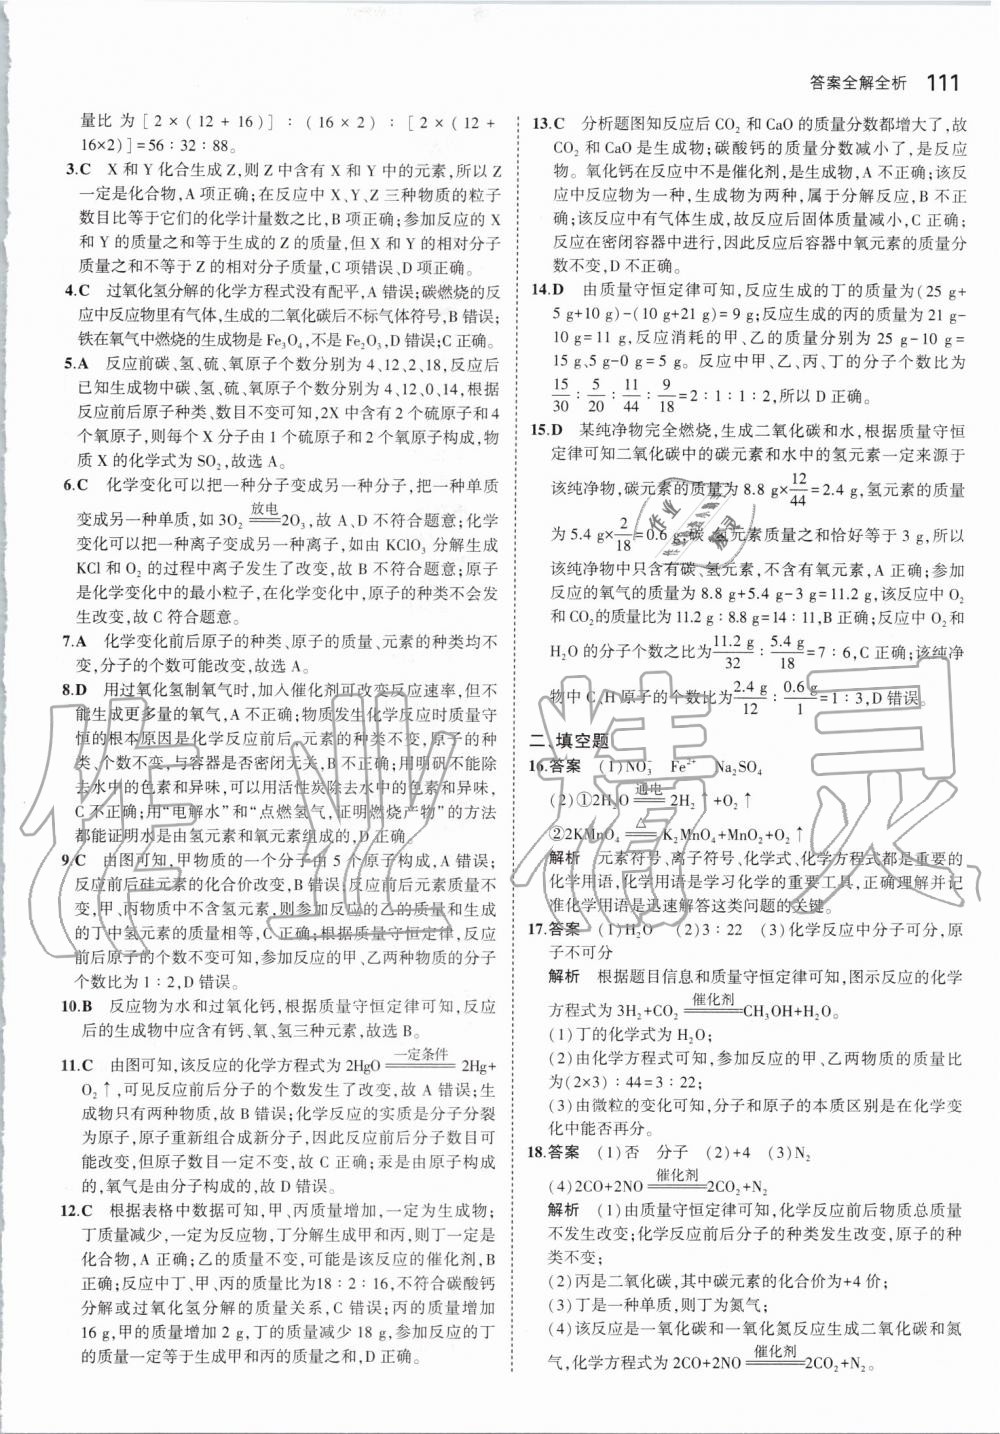 答案全解全析 111
量比 为[2×(12+16)]∶(16×2)∶[2×(12+
16×2)]=56∶32∶88。
3.C X 和 Y 化合生成 Z,则 Z 中含有 X 和 Y 中的元素,所以 Z
一定是化合物,A 项正确;在反应中 X、Y、Z 三种物质的粒子
数目比等于它们的化学计量数之比,B 项正确;参加反应的 X
和 Y 的质量之和等于生成的 Z 的质量,但 X 和 Y 的相对分子
质量之和不等于 Z 的相对分子质量,C 项错误、D 项正确。
4.C 过氧化氢分解的化学方程式没有配平,A 错误;碳燃烧的反
应中反应物里有气体,生成的二氧化碳后不标气体符号,B 错误;
铁在氧气中燃烧的生成物是 Fe₃O₄,不是 Fe₂O₃,D 错误;C 正确。
5.A 反应前碳、氢、硫、氧原子个数分别为 4、12、2、18,反应后
已知生成物中碳、氢、硫、氧原子个数分别为 4、12、0、14,根据
反应前后原子种类、数目不变可知,2X 中含有 2 个硫原子和 4
个氧原子,则每个 X 分子由 1 个硫原子和 2 个氧原子构成,物
质 X 的化学式为 SO₂,故选 A。
6.C 化学变化可以把一种分子变成另一种分子,把一种单质
变成另一种单质,如 3O₂ =放电= 2O₃,故 A、D 不符合题意;化学
变化可以把一种离子变成另一种离子,如由 KClO₃ 分解生成
KCl 和 O₂ 的过程中离子发生了改变,故 B 不符合题意;原子
是化学变化中的最小粒子,在化学变化中,原子的种类不会发
生改变,故 C 符合题意。
7.A 化学变化前后原子的种类、原子的质量、元素的种类均不
变,分子的个数可能改变,故选 A。
8.D 用过氧化氢制氧气时,加入催化剂可改变反应速率,但不
能生成更多量的氧气,A 不正确;物质发生化学反应时质量守
恒的根本原因是化学反应前后,元素的种类不变,原子的种
类、个数不变,与容器是否密闭无关,B 不正确;用明矾不能除
去水中的色素和异味,可以用活性炭除去水中的色素和异味,
C 不正确;用“电解水”和“点燃氢气,证明燃烧产物”的方法
都能证明水是由氢元素和氧元素组成的,D 正确。
9.C 由图可知,甲物质的一个分子由 5 个原子构成,A 错误;
反应前后硅元素的化合价改变,B 错误;反应前后元素质量不
变,甲、丙物质中不含氢元素,则参加反应的乙的质量与生成
的丁中氢元素的质量相等,C 正确;根据质量守恒定律,反应
前后原子的个数不变可知,参加反应的甲、乙两种物质的分子
个数比为 1∶2,D 错误。
10.B 反应物为水和过氧化钙,根据质量守恒定律可知,反应
后的生成物中应含有钙、氧、氢三种元素,故选 B。
11.C 由图可知,该反应的化学方程式为 2HgO =一定条件= 2Hg+
O₂↑,可见反应前后分子的个数发生了改变,故 A 错误;生
成物只有两种物质,故 B 错误;化学反应的实质是分子分裂
为原子,原子重新组合成新分子,因此反应前后分子数目可
能改变,但原子数目一定不变,故 C 正确;汞是由原子构成
的,氧气是由分子构成的,故 D 错误。
12.C 根据表格中数据可知,甲、丙质量增加,一定为生成物;
丁质量减少,一定为反应物,丁分解生成甲和丙,则丁一定是
化合物,A 正确;乙的质量不变,可能是该反应的催化剂,B
正确;反应中丁、甲、丙的质量比为18∶2∶16,不符合碳酸钙
分解或过氧化氢分解的质量关系,C 错误;丙的质量增加
16 g,甲的质量增加 2 g,丁的质量减少 18 g,参加反应的丁
的质量一定等于生成甲和丙的质量之和,D 正确。
13.C 分析题图知反应后 CO₂ 和 CaO 的质量分数都增大了,故
CO₂ 和 CaO 是生成物;碳酸钙的质量分数减小了,是反应
物。氧化钙在反应中不是催化剂,是生成物,A 不正确;该反
应中反应物为一种,生成物为两种,属于分解反应,B 不正
确;该反应中有气体生成,故反应后固体质量减小,C 正确;
反应在密闭容器中进行,因此反应后容器中氧元素的质量分
数不变,D 不正确。
14.D 由质量守恒定律可知,反应生成的丁的质量为(25 g+
5 g+10 g)-(10 g+21 g)=9 g;反应生成的丙的质量为21 g-
10 g=11 g,反应消耗的甲、乙的质量分别为 25 g-10 g=
15 g、5 g-0 g=5 g。反应中甲、乙、丙、丁的分子个数比为
15/30∶5/20∶11/44∶9/18=2∶1∶1∶2,所以 D 正确。
15.D 某纯净物完全燃烧,生成二氧化碳和水,根据质量守恒
定律可知二氧化碳中的碳元素和水中的氢元素一定来源于
该纯净物,碳元素的质量为 8.8 g×12/44=2.4 g,氢元素的质量
为 5.4 g×2/18=0.6 g;碳、氢元素质量之和恰好等于 3 g,所以
该纯净物中只含有碳、氢元素,不含有氧元素,A 正确;参加
反应的氧气的质量为 8.8 g+5.4 g-3 g=11.2 g,该反应中 O₂
和 CO₂的质量比为 11.2 g∶8.8 g=14∶11,B 正确;反应中 O₂和
H₂O 的分子个数之比为11.2 g/32∶5.4 g/18=7∶6,C 正确;该纯净
物中 C、H 原子的个数比为2.4 g/12∶0.6 g/1=1∶3,D 错误。
二、填空题
16.答案 (1)NO₃⁻ Fe²⁺ Na₂SO₄
(2)①2H₂O =通电= 2H₂↑+O₂↑
②2KMnO₄ =△= K₂MnO₄+MnO₂+O₂↑
解析 元素符号、离子符号、化学式、化学方程式都是重要的
化学用语,化学用语是学习化学的重要工具,正确理解并记
准化学用语是迅速解答这类问题的关键。
17.答案 (1)H₂O (2)3∶22 (3)化学反应中分子可分,原
子不可分
解析 根据题目信息和质量守恒定律可知,图示反应的化学
方程式为 3H₂+CO₂ =催化剂= CH₃OH+H₂O。
(1)丁的化学式为 H₂O;
(2)由化学方程式可知,参加反应的甲、乙两物质的质量比
为(2×3)∶44=3∶22;
(3)由微粒的变化可知,分子和原子的本质区别是在化学变
化中能否再分。
18.答案 (1)否 分子 (2)+4 (3)N₂
(4)2CO+2NO =催化剂= 2CO₂+N₂
解析 (1)由质量守恒定律可知,化学反应前后物质总质量
不发生改变;化学反应前后分子的种类发生改变,原子的种
类不变;
(2)丙是二氧化碳,其中碳元素的化合价为+4 价;
(3)丁是一种单质,则丁为氮气;
(4)该反应是一氧化碳和一氧化氮反应生成二氧化碳和氮
气,化学方程式为 2CO+2NO =催化剂= 2CO₂+N₂。
作业精灵